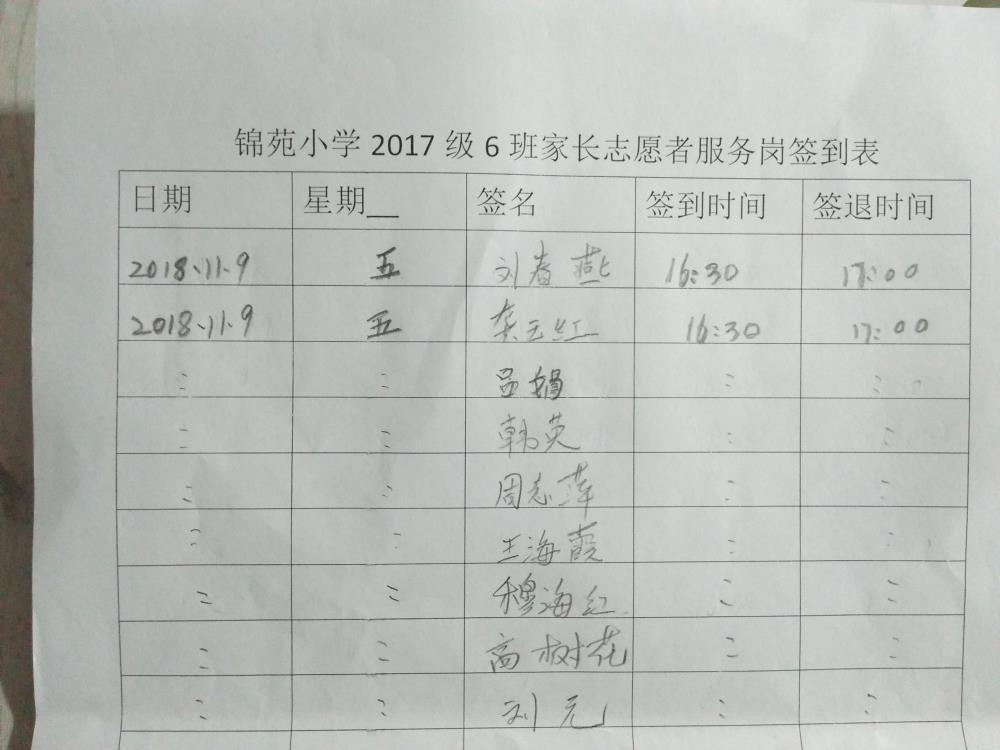 锦苑小学2017级6班家长志愿者服务岗签到表
日期 星期__ 签名 签到时间 签退时间
2018.11.9 五 刘春燕 16:30 17:00
2018.11.9 五 龚玉红 16:30 17:00
:: :: 吕娟 :: ::
:: :: 韩英 :: ::
:: :: 周志萍 :: ::
:: :: 王海霞 :: ::
:: :: 穆海红 :: ::
:: :: 高树花 :: ::
:: :: 刘元 :: ::